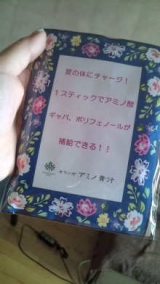 昼の体にチャージ！
1スティックでアミノ酸
ギャバ、ポリフェノールが
補給できる！！
アミノ青汁